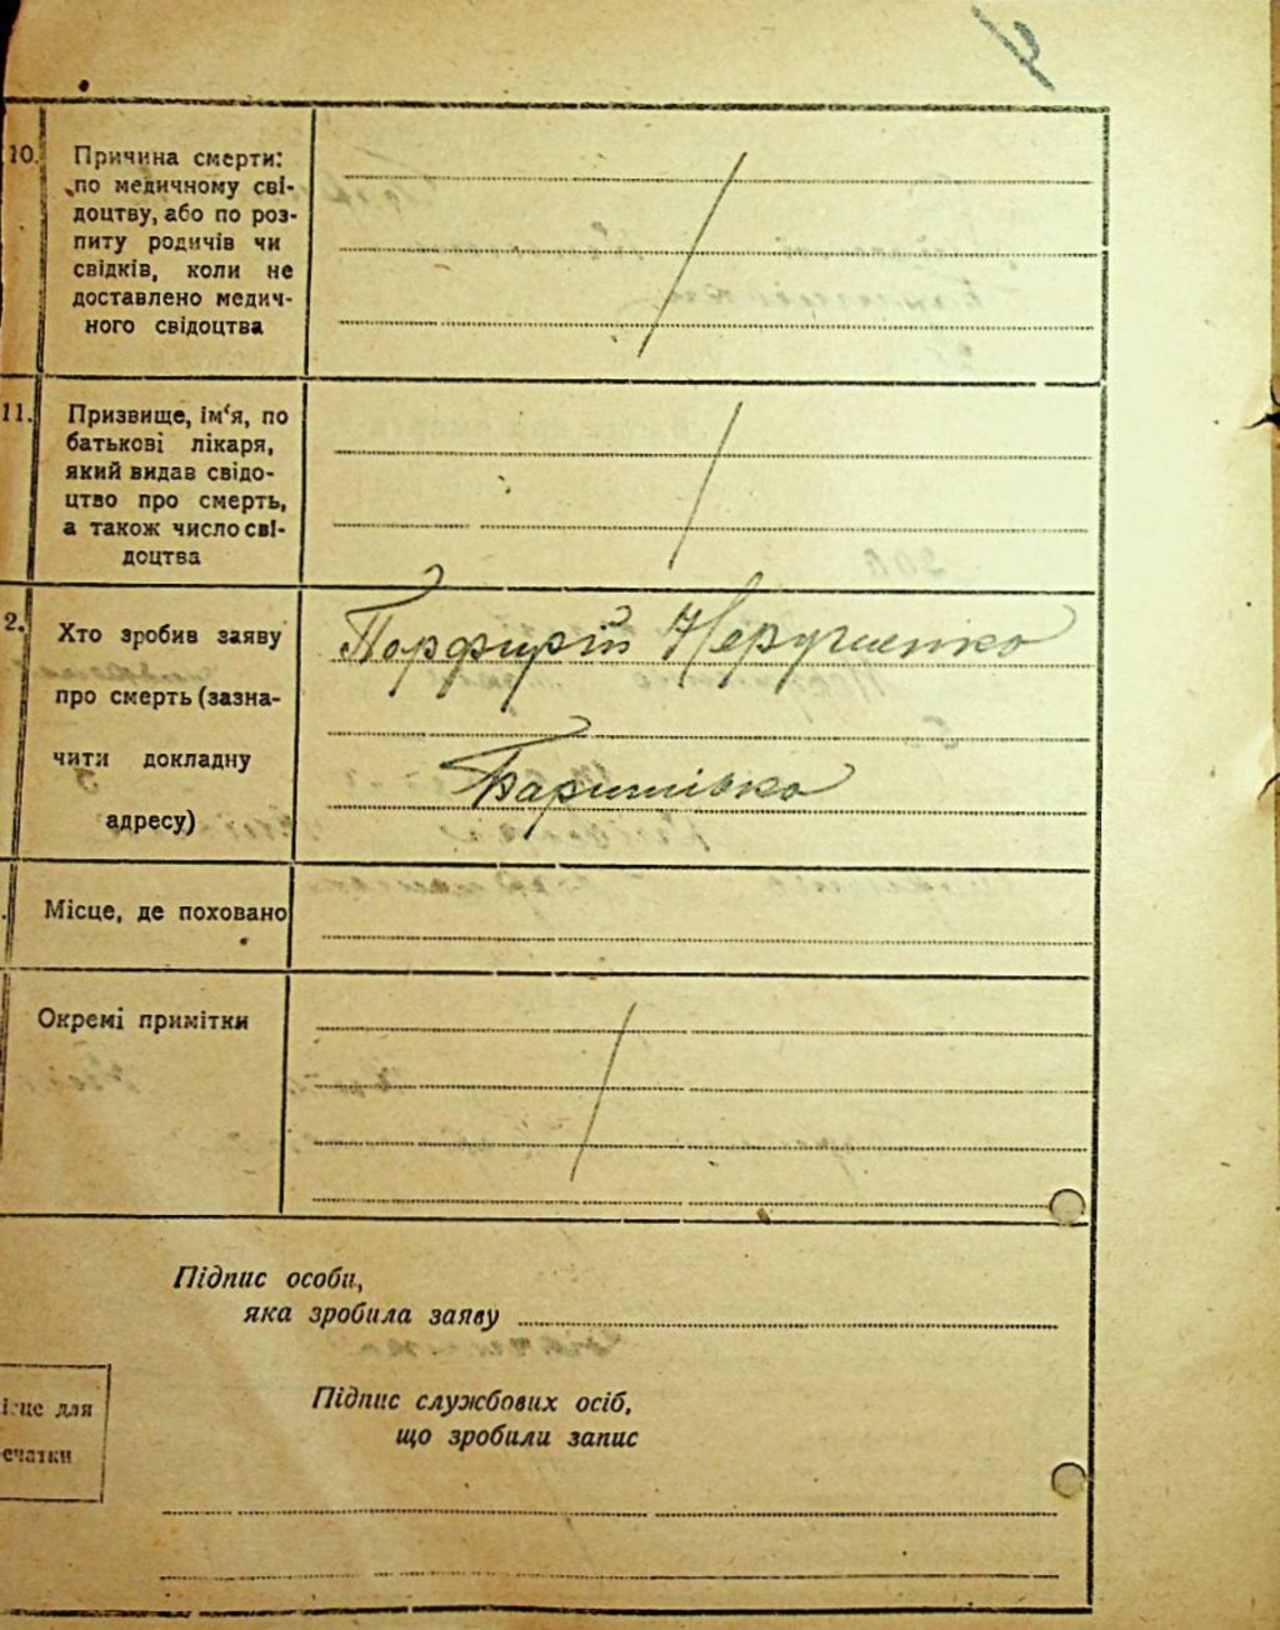 10.
Причина смерти:
по медичному сві-
доцтву, або по роз-
питу родичів чи
свідків, коли не
доставлено медич-
ного свідоцтва
11.
Призвище, ім‘я, по
батькові лікаря,
який видав свідо-
цтво про смерть,
а також число сві-
доцтва
2.
Хто зробив заяву
про смерть (зазна-
чити докладну
адресу)
Порфирій
Баришівка
Місце, де поховано
Окремі примітки
Підпис особи,
яка зробила заяву
Підпис службових осіб,
що зробили запис
ісце для
ечатки